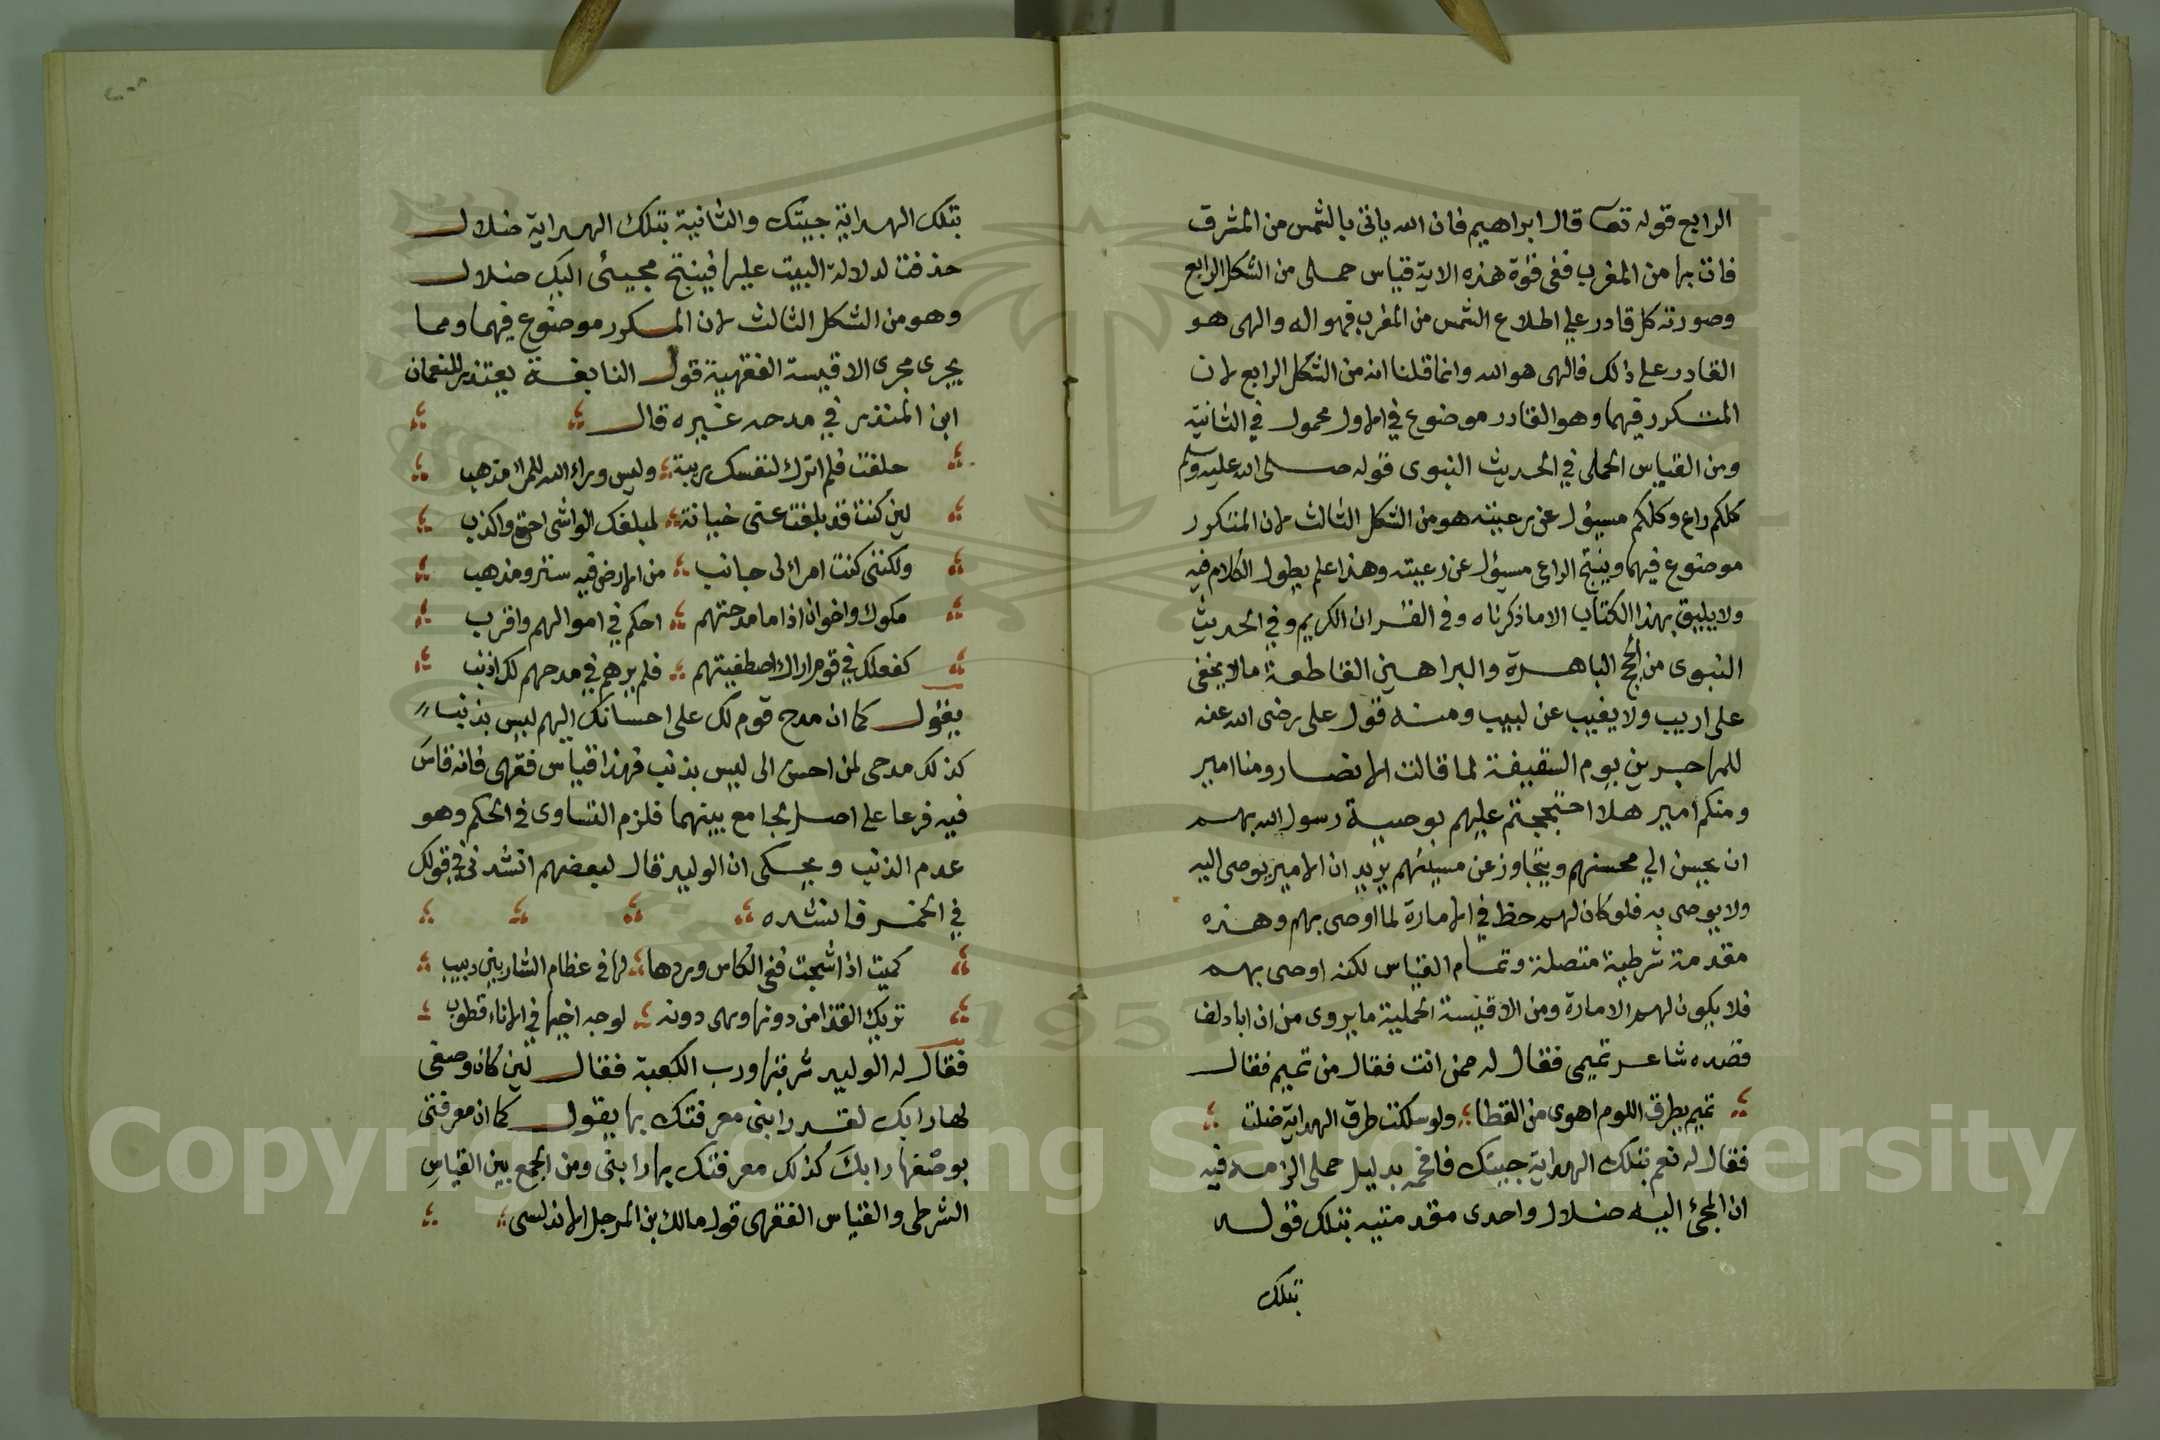 الرابع قوله تعا قال ابراهيم فان الله ياتى بالشمس من المشرق
فات بها من المغرب ففى قوة هذه الاية قياس حملى من الشكل الرابع
وصورته كل قادر على اطلاع الشمس من المغرب فهو اله والهى هو
القادر على ذلك فالهى هو الله وانما قلنا انه من الشكل الرابع لان
المتكرر فيهما وهو القادر موضوع في الاول محمول في الثانية
ومن القياس الحملى في الحديث النبوى قوله صلى الله عليه وسلم
كلكم راع وكلكم مسؤل عن رعيته هو من الشكل الثالث لان المتكرر
موضوع فيهما وينتج الراعى مسؤل عن رعيته وهذا علم يطول الكلام فيه
ولا يليق بهذا الكتاب الا ما ذكرناه وفى القران الكريم وفي الحديث
النبوى من الحجج الباهرة والبراهين القاطعة ما لا يخفى
على اريب ولا يغيب عن لبيب ومنه قول على رضى الله عنه
للمهاجرين يوم السقيفة لما قالت الانصار ومنا امير
ومنكم امير هلا احتججتم عليهم بوصية رسول الله بهم
ان يحسن الي محسنهم ويتجاوز عن مسيئهم يريد ان الامير يوصى اليه
ولا يوصى به فلو كان لهم حظ في الامارة لما اوصى بهم وهذه
مقدمة شرطية متصلة وتمام القياس لكنه اوصى بهم
فلا يكون لهم الامارة ومن الاقيسة الحملية ما يروى من ان ابا دلف
قصده شاعر تميمى فقال له ممن انت فقال من تميم فقال
تميم بطرق اللوم اهوى من القطا ولو سلكت طرق الهداية ضلت
فقال له نعم بتلك الهداية جيتك فافحمه بدليل حملى الزامه فيه
ان المجئ اليه ضلال واحدى مقدمتيه بتلك قوله
بتلك
بتلك الهداية جيتك والثانية بتلك الهداية ضلال
حذفت لدلالة البيت عليها فينتج مجيئى اليك ضلال
وهو من الشكل الثالث لان المتكرر موضوع فيهما ومما
يجرى مجرى الاقيسة الفقهية قول النابغة يعتذر للنعمان
ابن المنذر في مدحه غيره قال
حلفت فلم اترك لنفسك ريبة وليس وراء الله للمرء مذهب
لين كنت قد بلغت عنى خيانة لمبلغك الواشى احق واكذب
ولكننى كنت امراء لى جانب من الارض فيه ستر ومذهب
مكوك واخوان اذا ما مدحتهم احكم في اموالهم واقرب
كفعلك في قوم اراك اصطفيتهم فلم يرهم في مدحهم لك اذنب
يقول كما ان مدح قوم لك على احسانك اليهم ليس بذنب
كذلك مدحى لمن احسن الى ليس بذنب فهذا قياس فقهى فانه قاس
فيه فرعا على اصل بجامع بينهما فلزم التساوى في الحكم وهو
عدم الذنب ويحكى ان الوليد قال لبعضهم انشدنى في قولك
في الخمر فانشده
كميت اذا شجت ففى الكاس وردها لها فى عظام الشاربين دبيب
تريك القذا من دونها وهى دونه لوجه اخيها في الاناء قطوب
فقال له الوليد شربتها ورب الكعبة فقال لين كان وصفى
لها رابك لقد رابنى معرفتك بها يقول كما ان معرفتى
بوصفها رابك كذلك معرفتك بها رابنى ومن الجمع بين القياس
الشرطى والقياس الفقهى قول مالك بن المرجل الاندلسى
1957
Copyright © King Saud University